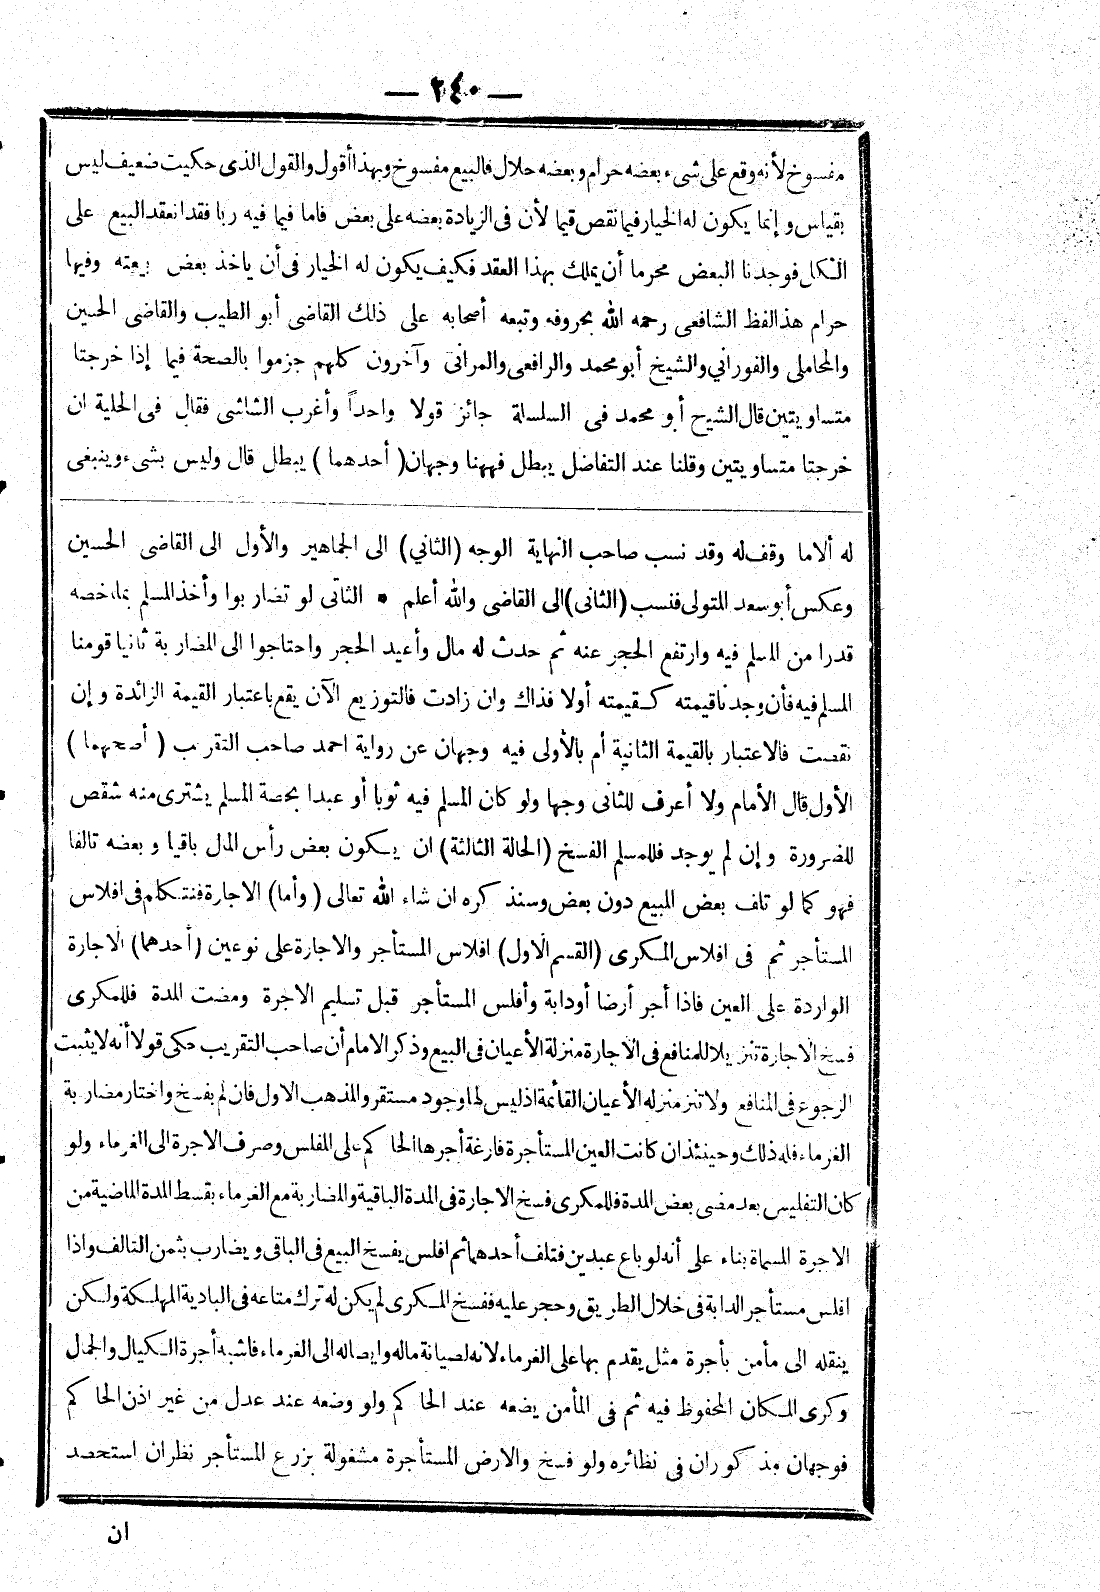 — ٢٤٠ —
مفسوخ لأنه وقع على شىء بعضه حرام وبعضه حلال فالبيع مفسوخ وبهذا أقول والقول الذى حكيت ضعيف ليس
بقياس وإنما يكون له الخيار فيما نقص قيما لأن فى الزيادة بعضه على بعض فاما فيما فيه ربا فقد انعقد البيع على
الكل فوجدنا البعض محرما أن يملك بهذا العقد فكيف يكون له الخيار فى أن ياخذ بعض بيعته وفيها
حرام هذا لفظ الشافعى رحمه الله بحروفه وتبعه أصحابه على ذلك القاضى أبو الطيب والقاضى الحسين
والمحاملى والفوراني والشيخ أبو محمد والرافعى والمرانى وآخرون كلهم جزموا بالصحة فيما إذا خرجتا
متساويتين قال الشيخ أبو محمد فى السلسلة جائز قولا واحداً وأغرب الشاشى فقال فى الحلية ان
خرجتا متساويتين وقلنا عند التفاضل يبطل فههنا وجهان (أحدهما) يبطل قال وليس بشىء وينبغى
له ألاما وقف له وقد نسب صاحب النهاية الوجه (الثاني) الى الجماهير والأول الى القاضى الحسين
وعكس أبو سعد المتولى فنسب (الثانى) الى القاضى والله أعلم * الثانى لو تضاربوا وأخذ المسلم بما خصه
قدرا من المسلم فيه وارتفع الحجر عنه ثم حدث له مال وأعيد الحجر واحتاجوا الى المضاربة ثانيا قومنا
المسلم فيه فأن وجدنا قيمته كقيمته أولا فذاك وان زادت فالتوزيع الآن يقع باعتبار القيمة الزائدة وإن
نقصت فالاعتبار بالقيمة الثانية أم بالأولى فيه وجهان عن رواية احمد صاحب التقريب (أصحهما)
الأول قال الأمام ولا أعرف للثانى وجها ولو كان المسلم فيه ثوبا أو عبدا بحصة المسلم يشترى منه شقص
للضرورة وإن لم يوجد فللمسلم الفسخ (الحالة الثالثة) ان يكون بعض رأس المال باقيا وبعضه تالفا
فهو كما لو تلف بعض المبيع دون بعض وسنذكره ان شاء الله تعالى (وأما) الاجارة فنتكلم فى افلاس
المستأجر ثم فى افلاس المكرى (القسم الاول) افلاس المستأجر والاجارة على نوعين (أحدهما) الاجارة
الواردة على العين فاذا أجر أرضا أو دابة وأفلس المستأجر قبل تسليم الاجرة ومضت المدة فللمكرى
فسخ الاجارة تنزيلا للمنافع فى الاجارة منزلة الأعيان فى البيع وذكر الامام أن صاحب التقريب حكى قولا أنه لا يثبت
الرجوع فى المنافع ولا تنز منزله الأعيان القائمة اذ ليس لها وجود مستقر والمذهب الاول فان لم يفسخ واختار مضاربة
الغرماء فله ذلك وحينئذ ان كانت العين المستأجرة فارغة أجرها الحاكم على المفلس وصرف الاجرة الى الغرماء ولو
كان التفليس بعد مضى بعض المدة فللمكرى فسخ الاجارة فى المدة الباقية والمضاربة مع الغرماء بقسط المدة الماضية من
الاجرة المسماة بناء على أنه لو باع عبدين فتلف أحدهما ثم افلس يفسخ البيع فى الباقى ويضارب بثمن التالف واذا
افلس مستأجر الدابة فى خلال الطريق وحجر عليه ففسخ المكرى لم يكن له ترك متاعه فى البادية المهلكة ولكن
ينقله الى مأمن بأجرة مثل يقدم بها على الغرماء لأنه لصيانة ماله وايصاله الى الغرماء فاشبه أجرة الكيال والحمال
وكرى المكان المحفوظ فيه ثم فى المأمن يضعه عند الحاكم ولو وضعه عند عدل من غير اذن الحاكم
فوجهان مذكوران فى نظائره ولو فسخ والارض المستأجرة مشغولة بزرع المستأجر نظر ان استحصد
ان